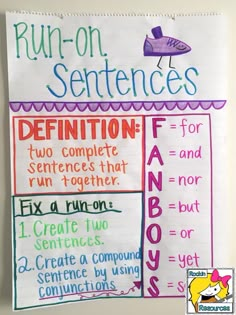 Run-on
Sentences
DEFINITION:
two complete
sentences that
run together.
Fix a run-on:
1. Create two
sentences.
2. Create a compound
sentence by using
conjunctions
F = for
A = and
N = nor
B = but
O = or
Y = yet
S = s
Rockin
Resources